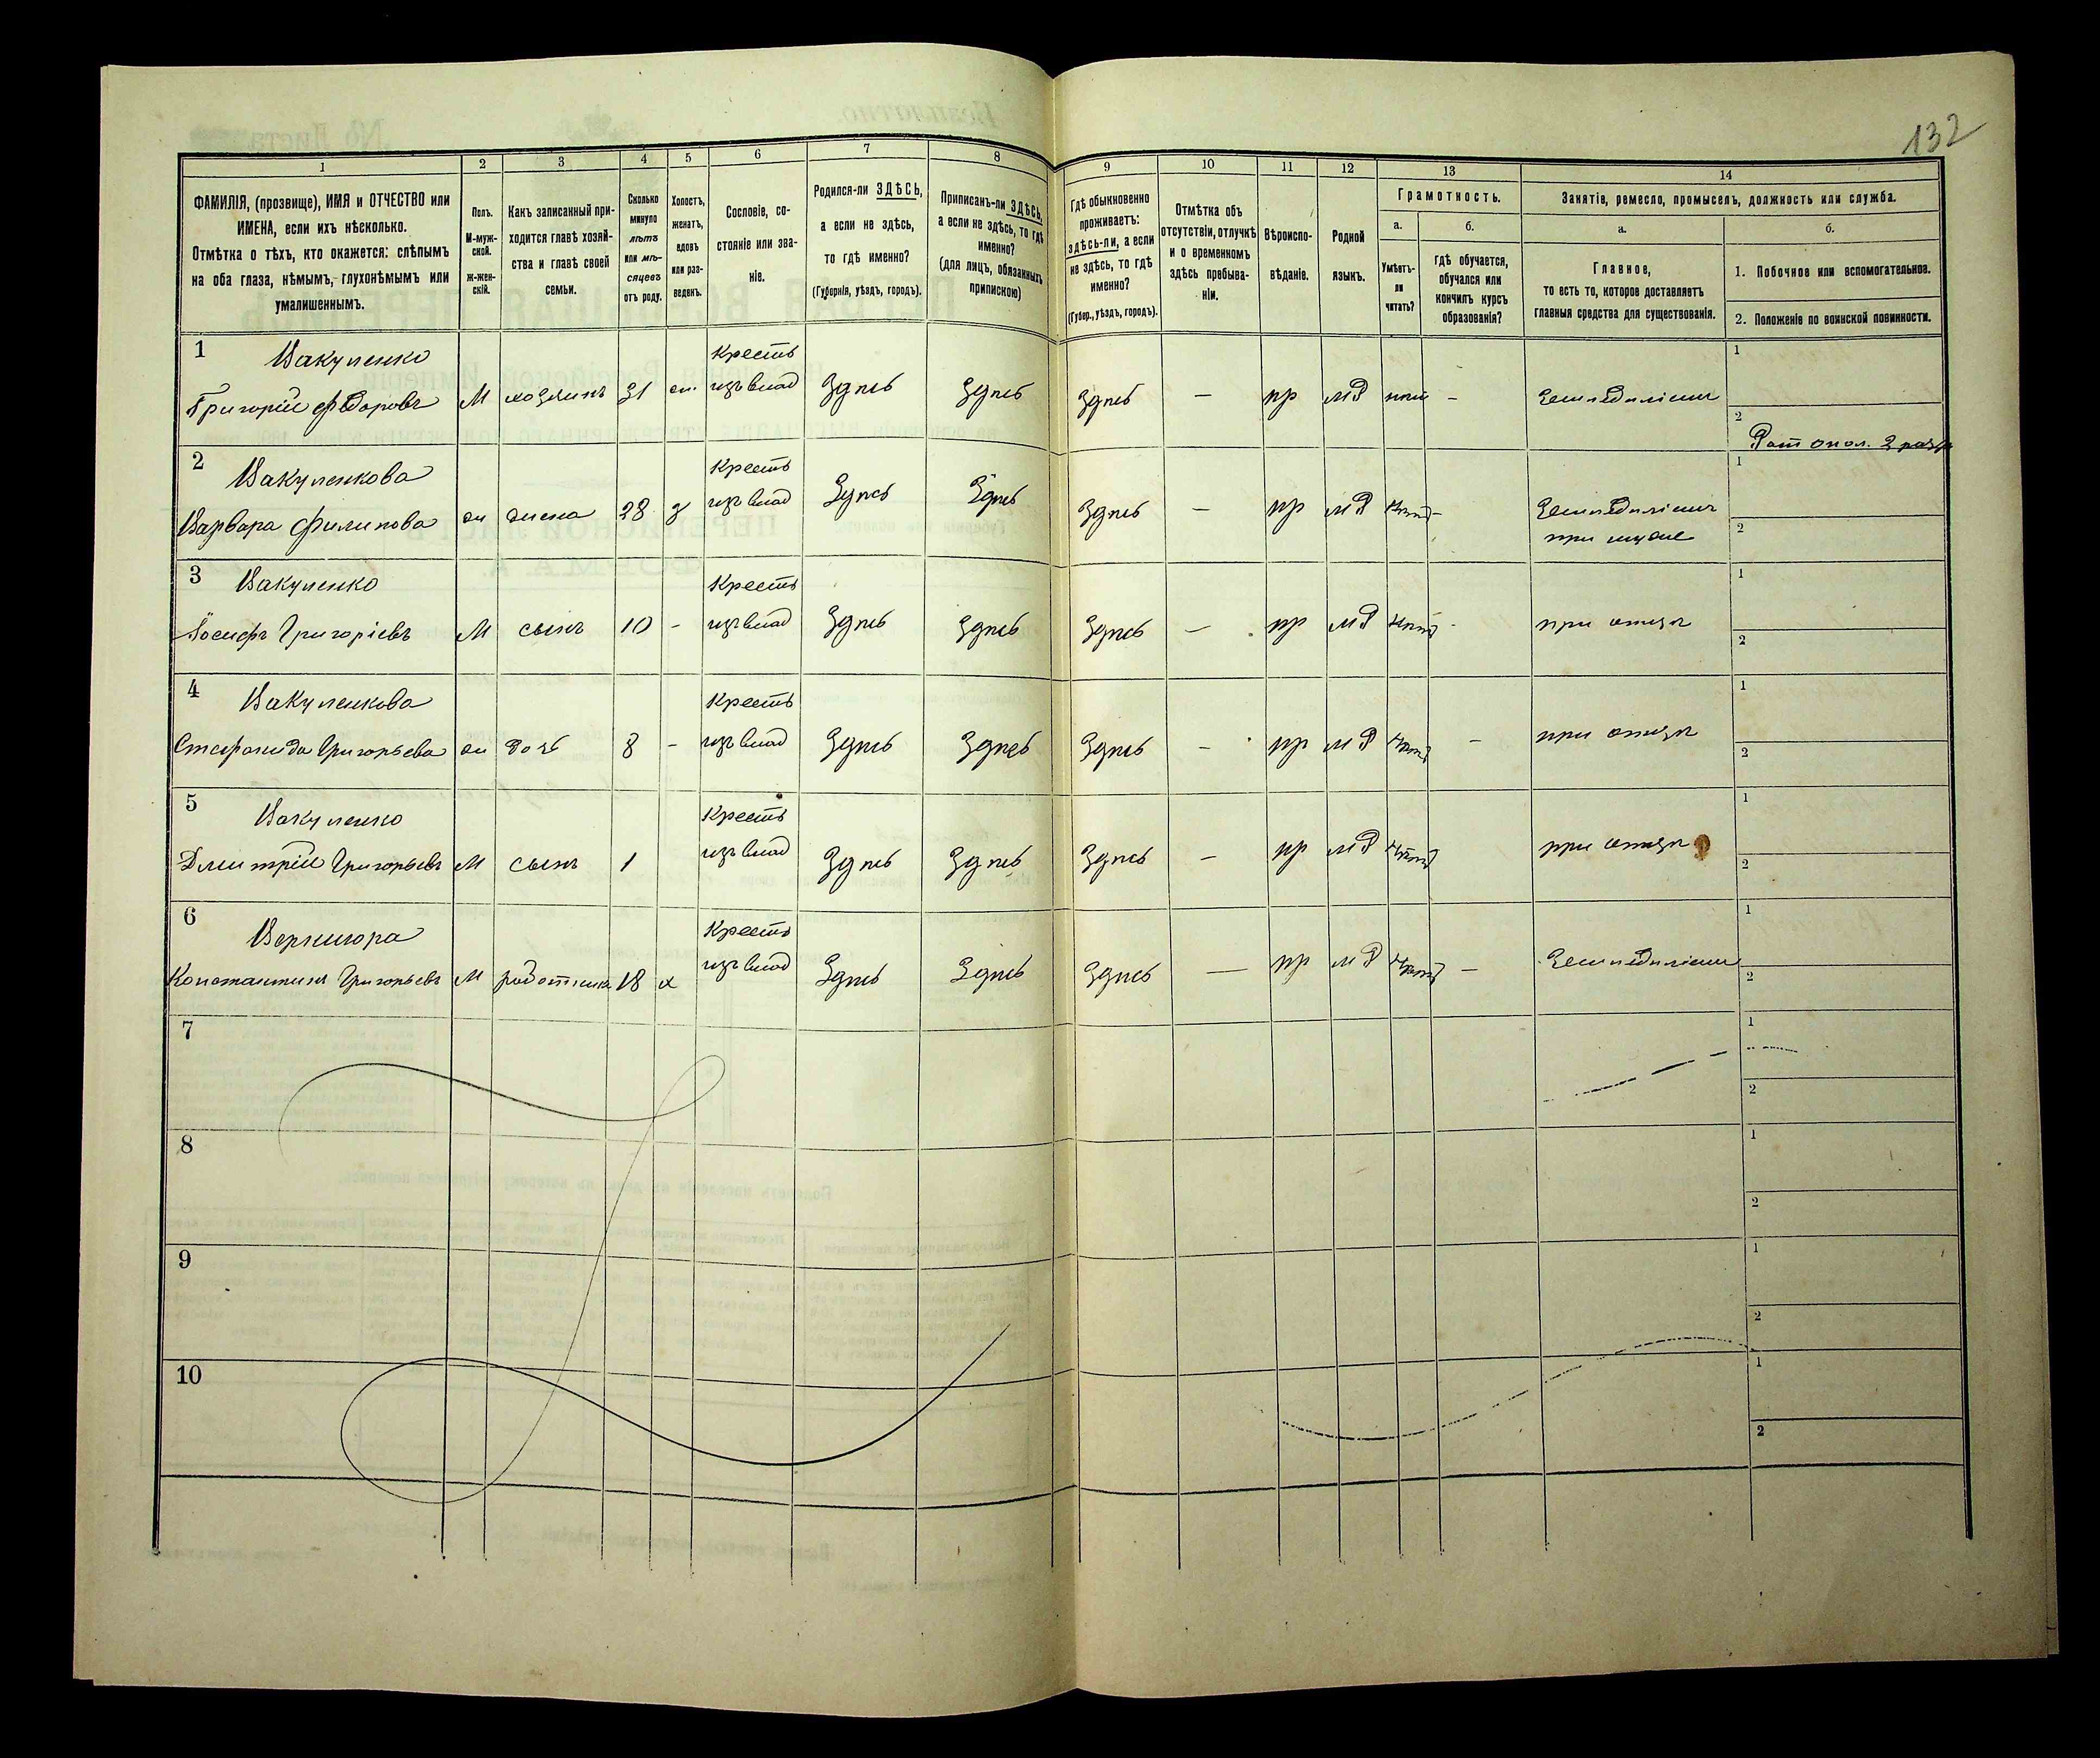 132
1
2
3
4
5
6
7
8
9
10
11
12
13
14
ФАМИЛІЯ, (прозвище), ИМЯ и ОТЧЕСТВО или
ИМЕНА, если ихъ нѣсколько.
Отмѣтка о тѣхъ, кто окажется: слѣпымъ
на оба глаза, нѣмымъ, глухонѣмымъ или
умалишеннымъ.
Полъ.
М-муж-
ской.
ж-жен-
скій.
Какъ записанный при-
ходится главѣ хозяй-
ства и главѣ своей
семьи.
Сколько
минуло
лѣтъ
или мѣ-
сяцевъ
отъ роду.
Холостъ,
женатъ,
вдовъ
или раз-
веденъ.
Сословіе, со-
стояніе или зва-
ніе.
Родился-ли ЗДѢСЬ,
а если не здѣсь,
то гдѣ именно?
(Губернія, уѣздъ, городъ).
Приписанъ-ли ЗДѢСЬ,
а если не здѣсь, то гдѣ
именно?
(для лицъ, обязанныхъ
припискою)
Гдѣ обыкновенно
проживаетъ:
здѣсь-ли, а если
не здѣсь, то гдѣ
именно?
(Губер., уѣздъ, городъ).
Отмѣтка объ
отсутствіи, отлучкѣ
и о временномъ
здѣсь пребыва-
ніи.
Вѣроиспо-
вѣданіе.
Родной
языкъ.
Грамотность.
а.
Умѣетъ-
ли
читать?
б.
гдѣ обучается,
обучался или
кончилъ курсъ
образованія?
Занятіе, ремесло, промыселъ, должность или служба.
а.
Главное,
то есть то, которое доставляетъ
главныя средства для существованія.
б.
1. Побочное или вспомогательное.
2. Положеніе по воинской повинности.
1
Вакуленко
Григорій Федоровъ
М
хозяинъ
31
Крестъ
изъ влад
Здѣсь
Здѣсь
Здѣсь
—
пр
мр
нѣтъ
-
Земледѣліемъ
1
2
Рат опол. 2 разр
2
Вакуленкова
Варвара Филипова
ж
жена
28
з
Крестъ
изъ влад
Здѣсь
Здѣсь
Здѣсь
—
пр
мр
нѣтъ
-
Земледѣліемъ
при мужѣ
1
2
3
Вакуленко
Іосифъ Григоріевъ
М
сынъ
10
-
Крестъ
изъ влад
Здѣсь
Здѣсь
Здѣсь
—
пр
мр
нѣтъ
-
при отцѣ
1
2
4
Вакуленкова
Стефанида Григорьева
ж
дочь
8
-
Крестъ
изъ влад
Здѣсь
Здѣсь
Здѣсь
-
пр
мр
нѣтъ
-
при отцѣ
1
2
5
Вакуленко
Дмитрій Григорьевъ
М
сынъ
1
Крестъ
изъ влад
Здѣсь
Здѣсь
Здѣсь
—
пр
мр
нѣтъ
при отцѣ
1
2
6
Вернигора
Константинъ Григорьевъ
М
работникъ
18
х
Крестъ
изъ влад
Здѣсь
Здѣсь
Здѣсь
—
пр
мр
нѣтъ
—
Земледѣліемъ
1
2
7
1
2
8
1
2
9
1
2
10
1
2